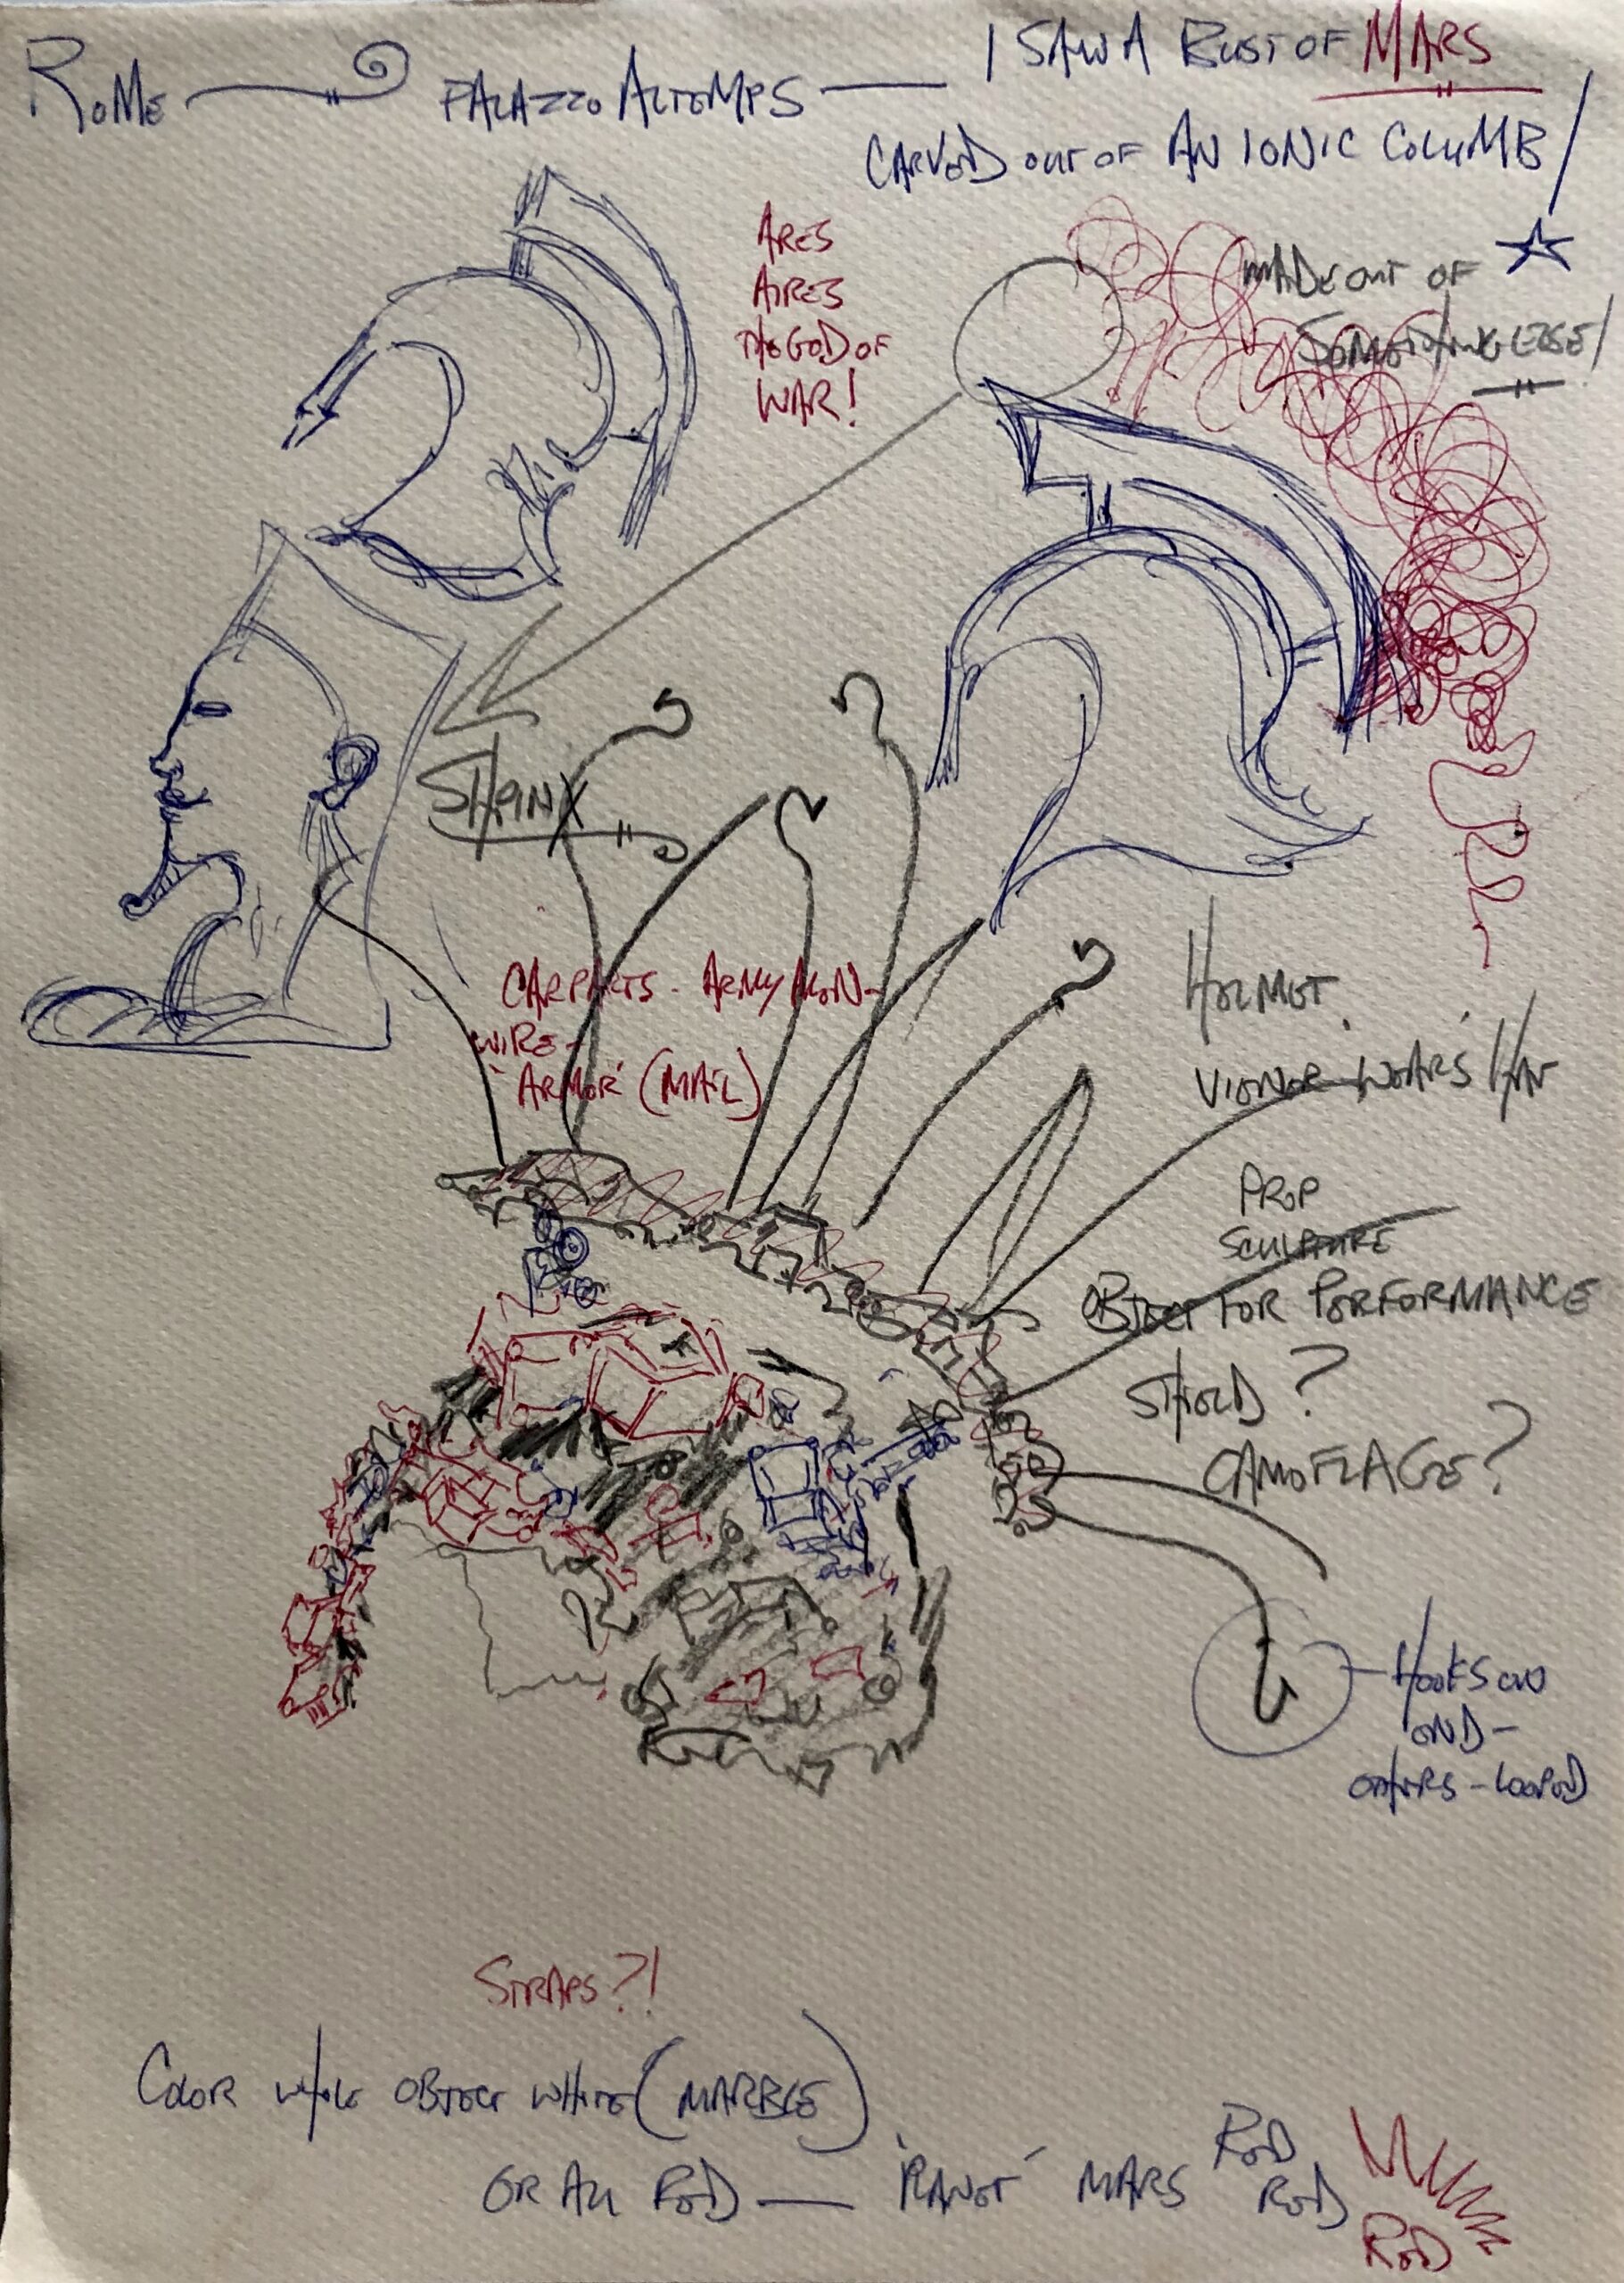 ROME
PALAZZO ALTEMPS — I SAW A BUST OF MARS
CARVED OUT OF AN IONIC COLUMB
ARES
AIRES
THE GOD OF
WAR!
MADE OUT OF
SOMETHING ELSE!
SHPINX
CAR PARTS - ARMY MEN -
WIRE -
'ARMOR' (MAIL)
HELMET
VIEWER WEARS
PROP
SCULPTURE
OBJECT FOR PERFORMANCE
SHIELD ?
CAMOFLAGE?
HOOKS ON
END -
OTHERS - LOOPED
STRAPS?!
COLOR WHOLE OBJECT WHITE (MARBLE)
OR ALL RED — 'PLANET' MARS RED
RED
RED